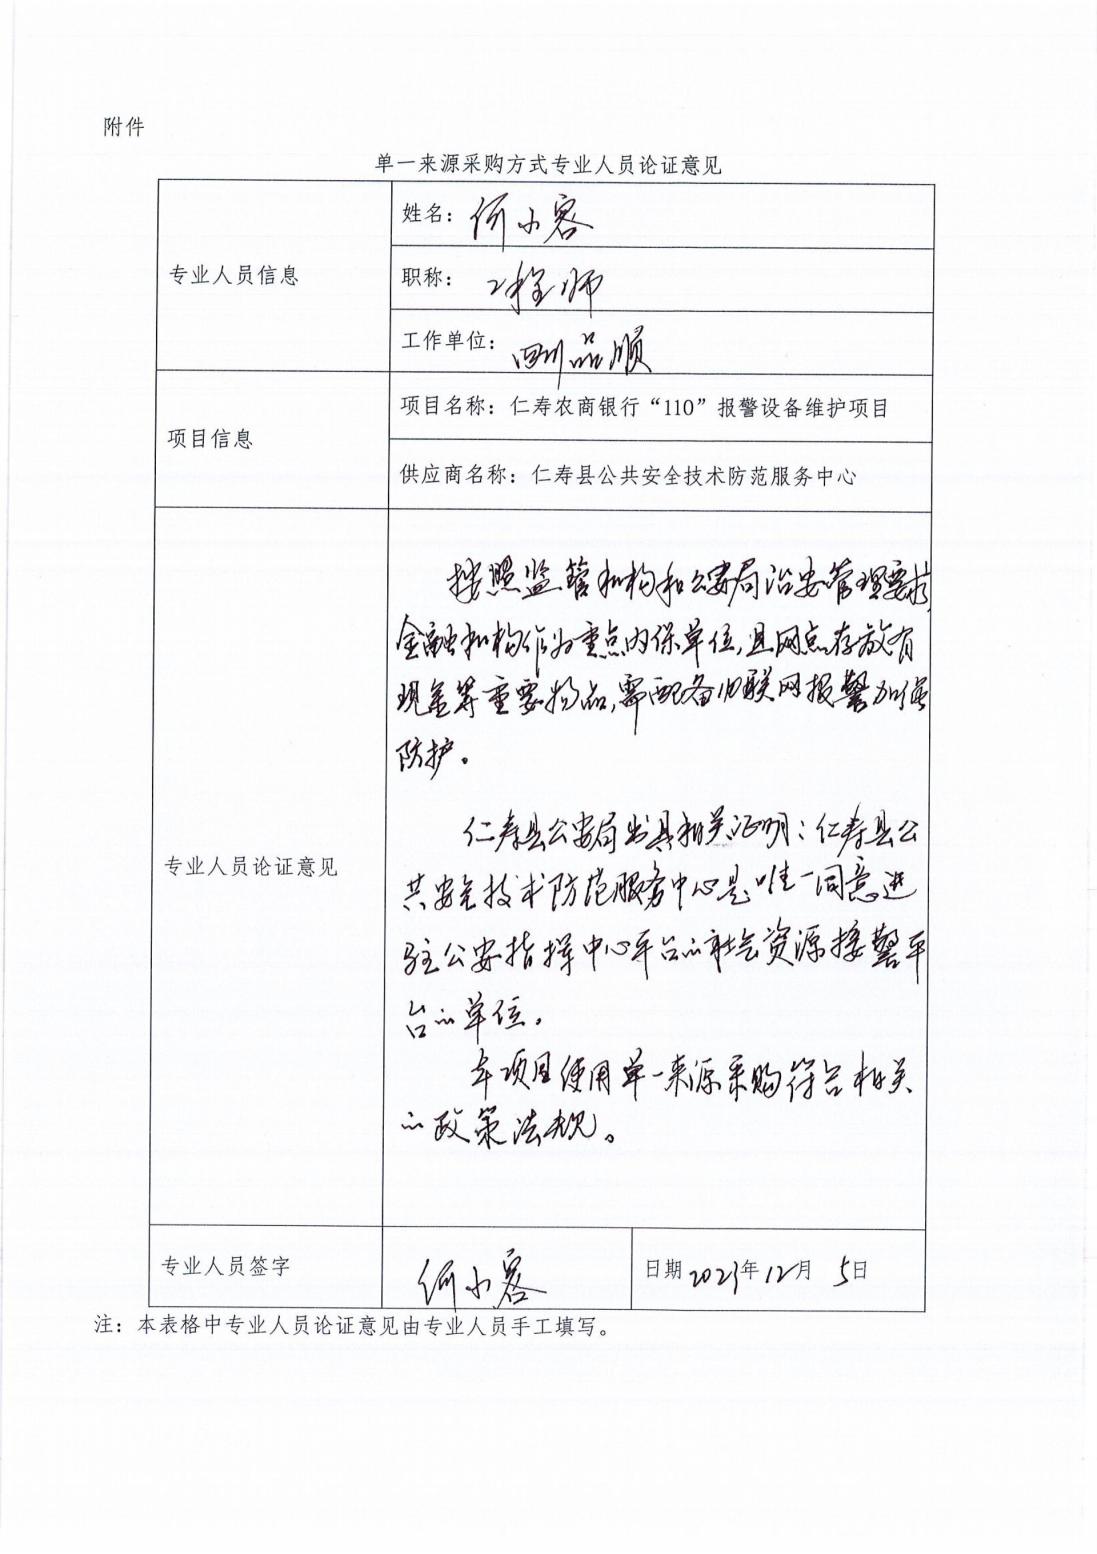 附件
单一来源采购方式专业人员论证意见
专业人员信息
姓名：何小容
职称：工程师
工作单位：四川品顺
项目信息
项目名称：仁寿农商银行“110”报警设备维护项目
供应商名称：仁寿县公共安全技术防范服务中心
专业人员论证意见
按照监管机构和公安局治安管理要求，
金融机构作为重点内保单位，且网点存放有
现金等重要物品，需配备 联网报警加强
防护。
仁寿县公安局出具相关证明：仁寿县公
共安全技术防范服务中心是唯一同意进
驻公安指挥中心平台的社会资源接警平
台的单位。
本项目使用单一来源采购符合相关
的政策法规。
专业人员签字
何小容
日期2023年12月5日
注：本表格中专业人员论证意见由专业人员手工填写。